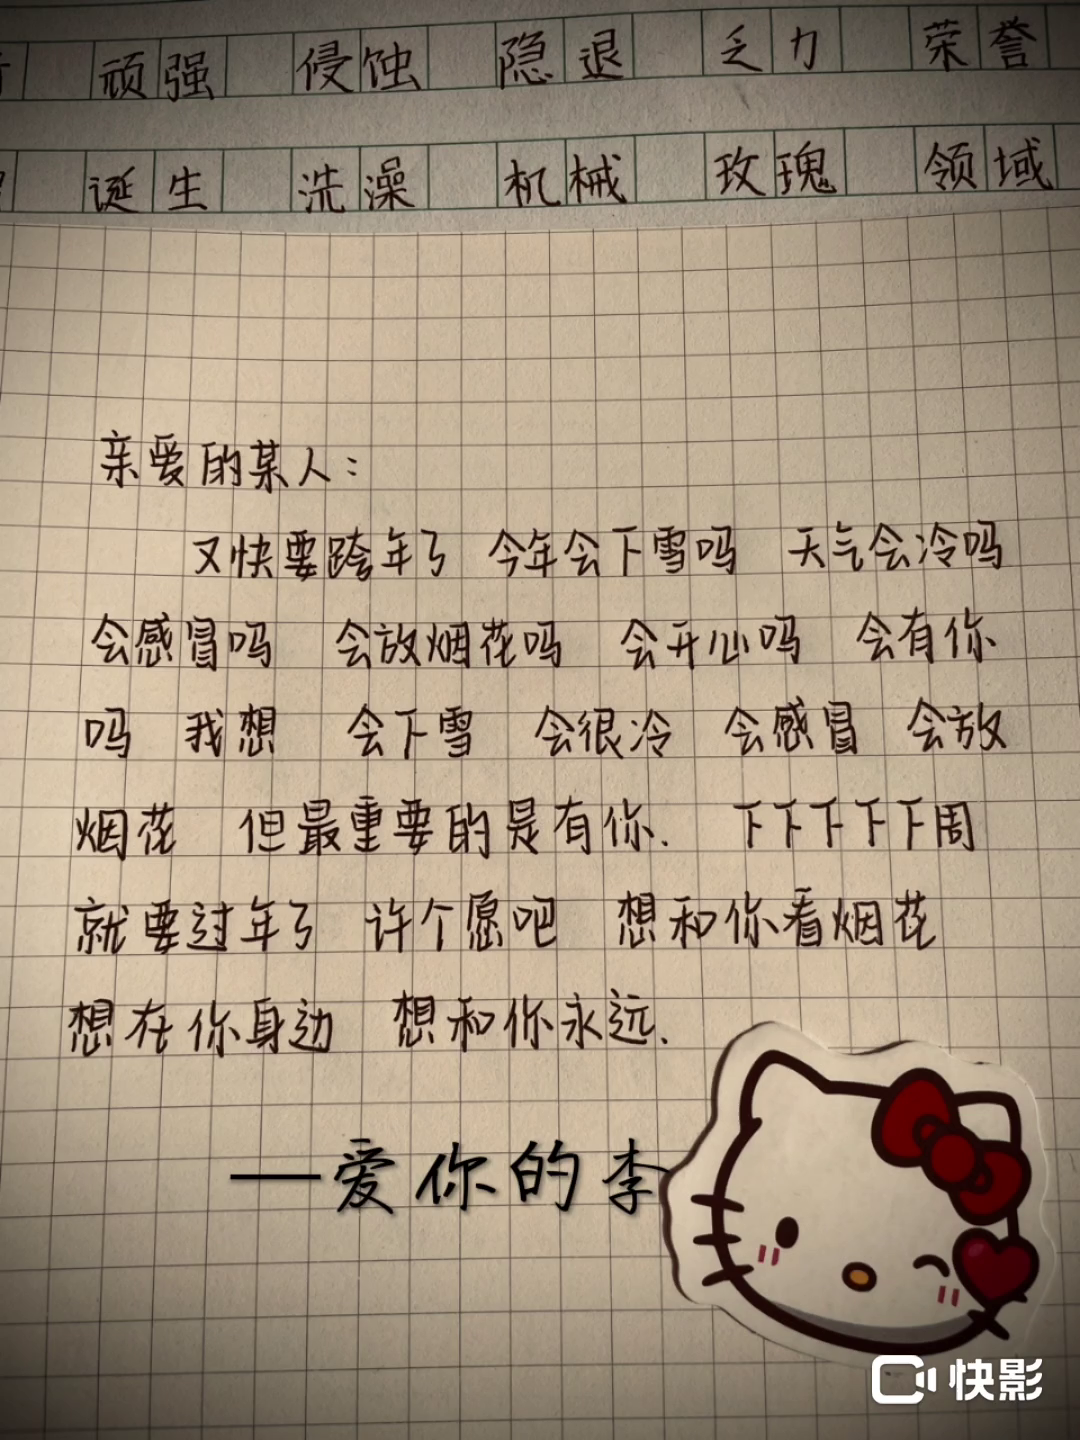 顽强 侵蚀 隐退 乏力 荣誉
诞生 洗澡 机械 玫瑰 领域
亲爱的某人:
又快要跨年了 今年会下雪吗 天气会冷吗
会感冒吗 会放烟花吗 会开心吗 会有你
吗 我想 会下雪 会很冷 会感冒 会放
烟花 但最重要的是有你.下下下下下周
就要过年了 许个愿吧 想和你看烟花
想在你身边 想和你永远.
—爱你的李
快影